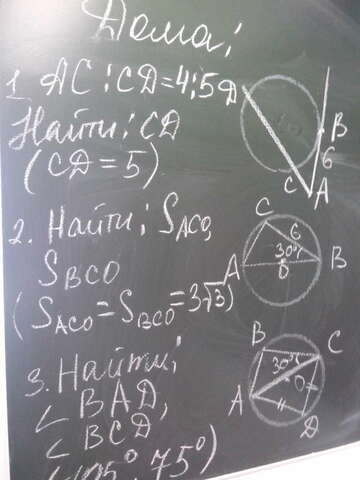 Дома:
1. AC : CD = 4 : 5
Найти: CD
(CD = 5)
D
B
6
C
A
2. Найти: S_ACO,
S_BCO
(S_ACO = S_BCO = 3√3)
C
6
30°
A
O
B
3. Найти:
∠BAD,
∠BCD
(105°, 75°)
B
C
30°
O
A
D